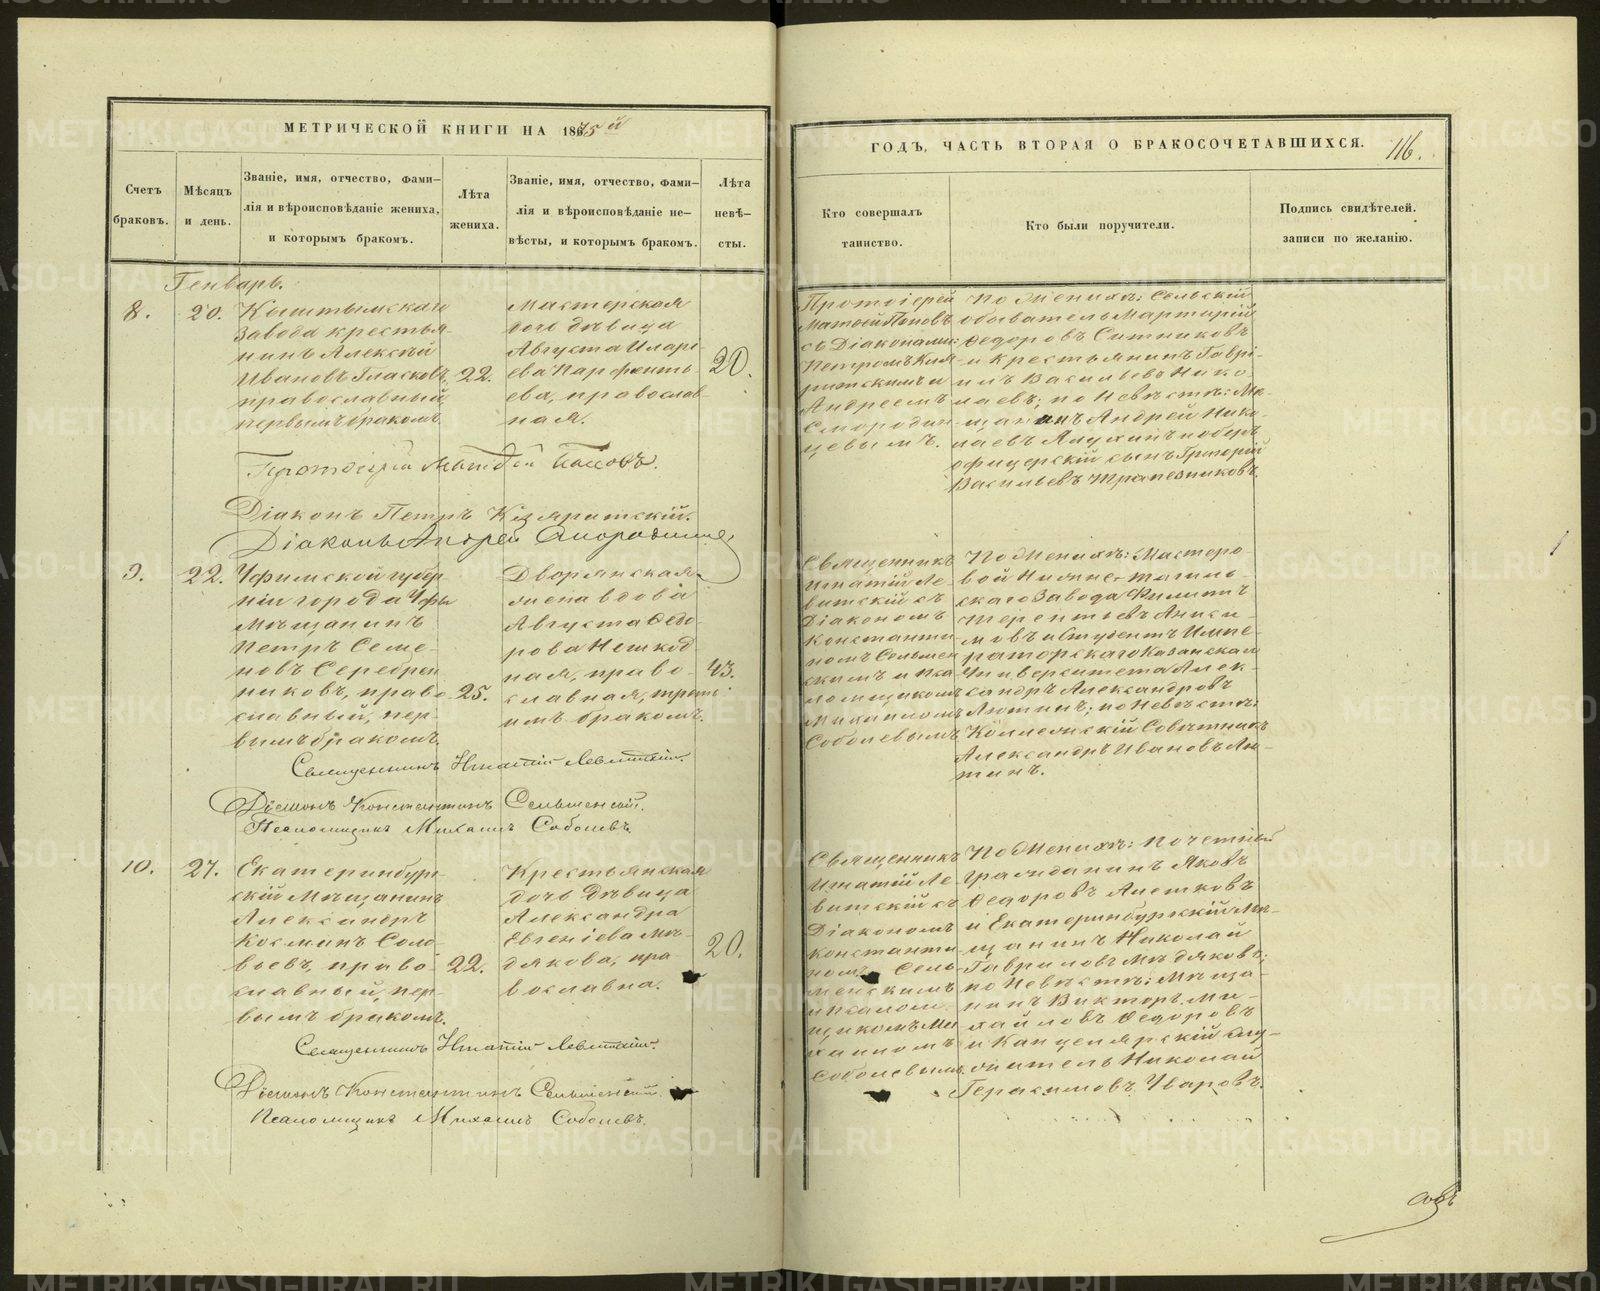 МЕТРИЧЕСКОЙ КНИГИ НА 1875й
Счетъ браковъ.
Мѣсяцъ и день.
Званіе, имя, отчество, фами-
лія и вѣроисповѣданіе жениха,
и которымъ бракомъ.
Лѣта жениха.
Званіе, имя, отчество, фами-
лія и вѣроисповѣданіе не-
вѣсты, и которымъ бракомъ.
Лѣта невѣ-
сты.
Генварь.
8.
20.
Кыштымскаго
завода крестья-
нинъ Алексѣй
Ивановъ Гласковъ,
православный,
первымъ бракомъ.
22.
Мастерская
дочь дѣвица
Августа Иларі-
ева Парфенть-
ева, православ-
ная.
20.
Протоіерей Матѳей Поповъ.
Діаконъ Петръ
Діаконъ Андрей Смородинцевъ
9.
22.
Уфимской губер
ніи города Уфы
Мѣщанинъ
Петръ Семе-
новъ Серебрен
никовъ, право
славный, пер-
вымъ бракомъ.
25.
Дворянская
жена вдова
Августа Ѳедо-
рова
ная, право-
славная, треть-
имъ бракомъ.
43.
Священникъ Игнатій Левитскій.
Діаконъ Константинъ Сельменскій.
Псаломщикъ Михаилъ Соболевъ.
10.
27.
Екатеринбург-
скій Мѣщанинъ
Александръ
Космин Соло-
вьевъ, право-
славный, пер-
вымъ бракомъ.
22.
Крестьянская
дочь дѣвица
Александра
Евгеніева Мѣ-
дякова, пра-
вославна.
20.
Священникъ Игнатій Левитскій.
Діаконъ Константинъ Сельменскій.
Псаломщикъ Михаилъ Соболевъ.
ГОДЪ, ЧАСТЬ ВТОРАЯ О БРАКОСОЧЕТАВШИХСЯ.
116.
Кто совершалъ таинство.
Кто были поручители.
Подпись свидѣтелей.
записи по желанію.
Протоіерей
Матѳей Поповъ
съ Діаконами:
Петромъ
и
Андреемъ
Смородин-
цевымъ.
По женихѣ: Сельскій
обыватель Мартирій
Ѳедоровъ Ситниковъ
и крестьянинъ Гаврі-
илъ Васильевъ Нико-
лаевъ; по невѣстѣ: Мѣ-
щанинъ Андрей Нико-
лаевъ
офицерскій сынъ Григорій
Васильевъ Трапезниковъ.
Священникъ
Игнатій Ле-
витскій съ
Діакономъ
Константи-
номъ Сельмен
скимъ и пса
ломщикомъ
Михаиломъ
Соболевымъ
По женихѣ: Мастеро-
вой Нижне-Тагиль-
скаго Завода Филиппъ
Терентьевъ Аниси-
мовъ и Студентъ Импе-
раторскаго Казанскаго
Университета Алек-
сандръ Александровъ
Лютинъ; по невѣстѣ:
Коллежскій Совѣтникъ
Александръ Ивановъ Лю-
тинъ.
Священникъ
Игнатій Ле-
витскій съ
Діакономъ
Константи-
номъ Сель-
менскимъ
и псалом-
щикомъ Ми
хаиломъ
Соболевымъ
По женихѣ: Почетный
гражданинъ Яковъ
Ѳедоровъ Алешковъ
и Екатеринбургскій Мѣ-
щанинъ Николай
Гавриловъ Мѣдяковъ;
по невѣстѣ: Мѣща-
нинъ Викторъ Ми-
хайловъ Ѳедоровъ
и Канцелярскій слу-
житель Николай
Герасимовъ Уваровъ.
METRIKI.GASO-URAL.RU